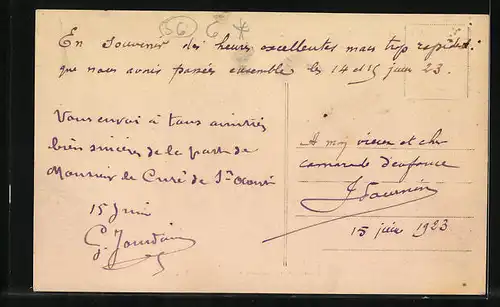 56 6
En souvenir des heures excellentes mais trop rapides
que nous avons passées ensemble les 14 et 15 juin 23.
Vous envoi à tous amitiés
bien sincères de la part de
Monsieur le Curé de St
15 Juin
G. Jourdain
A mon vieux et cher
camarade d'enfance
15 juin 1923